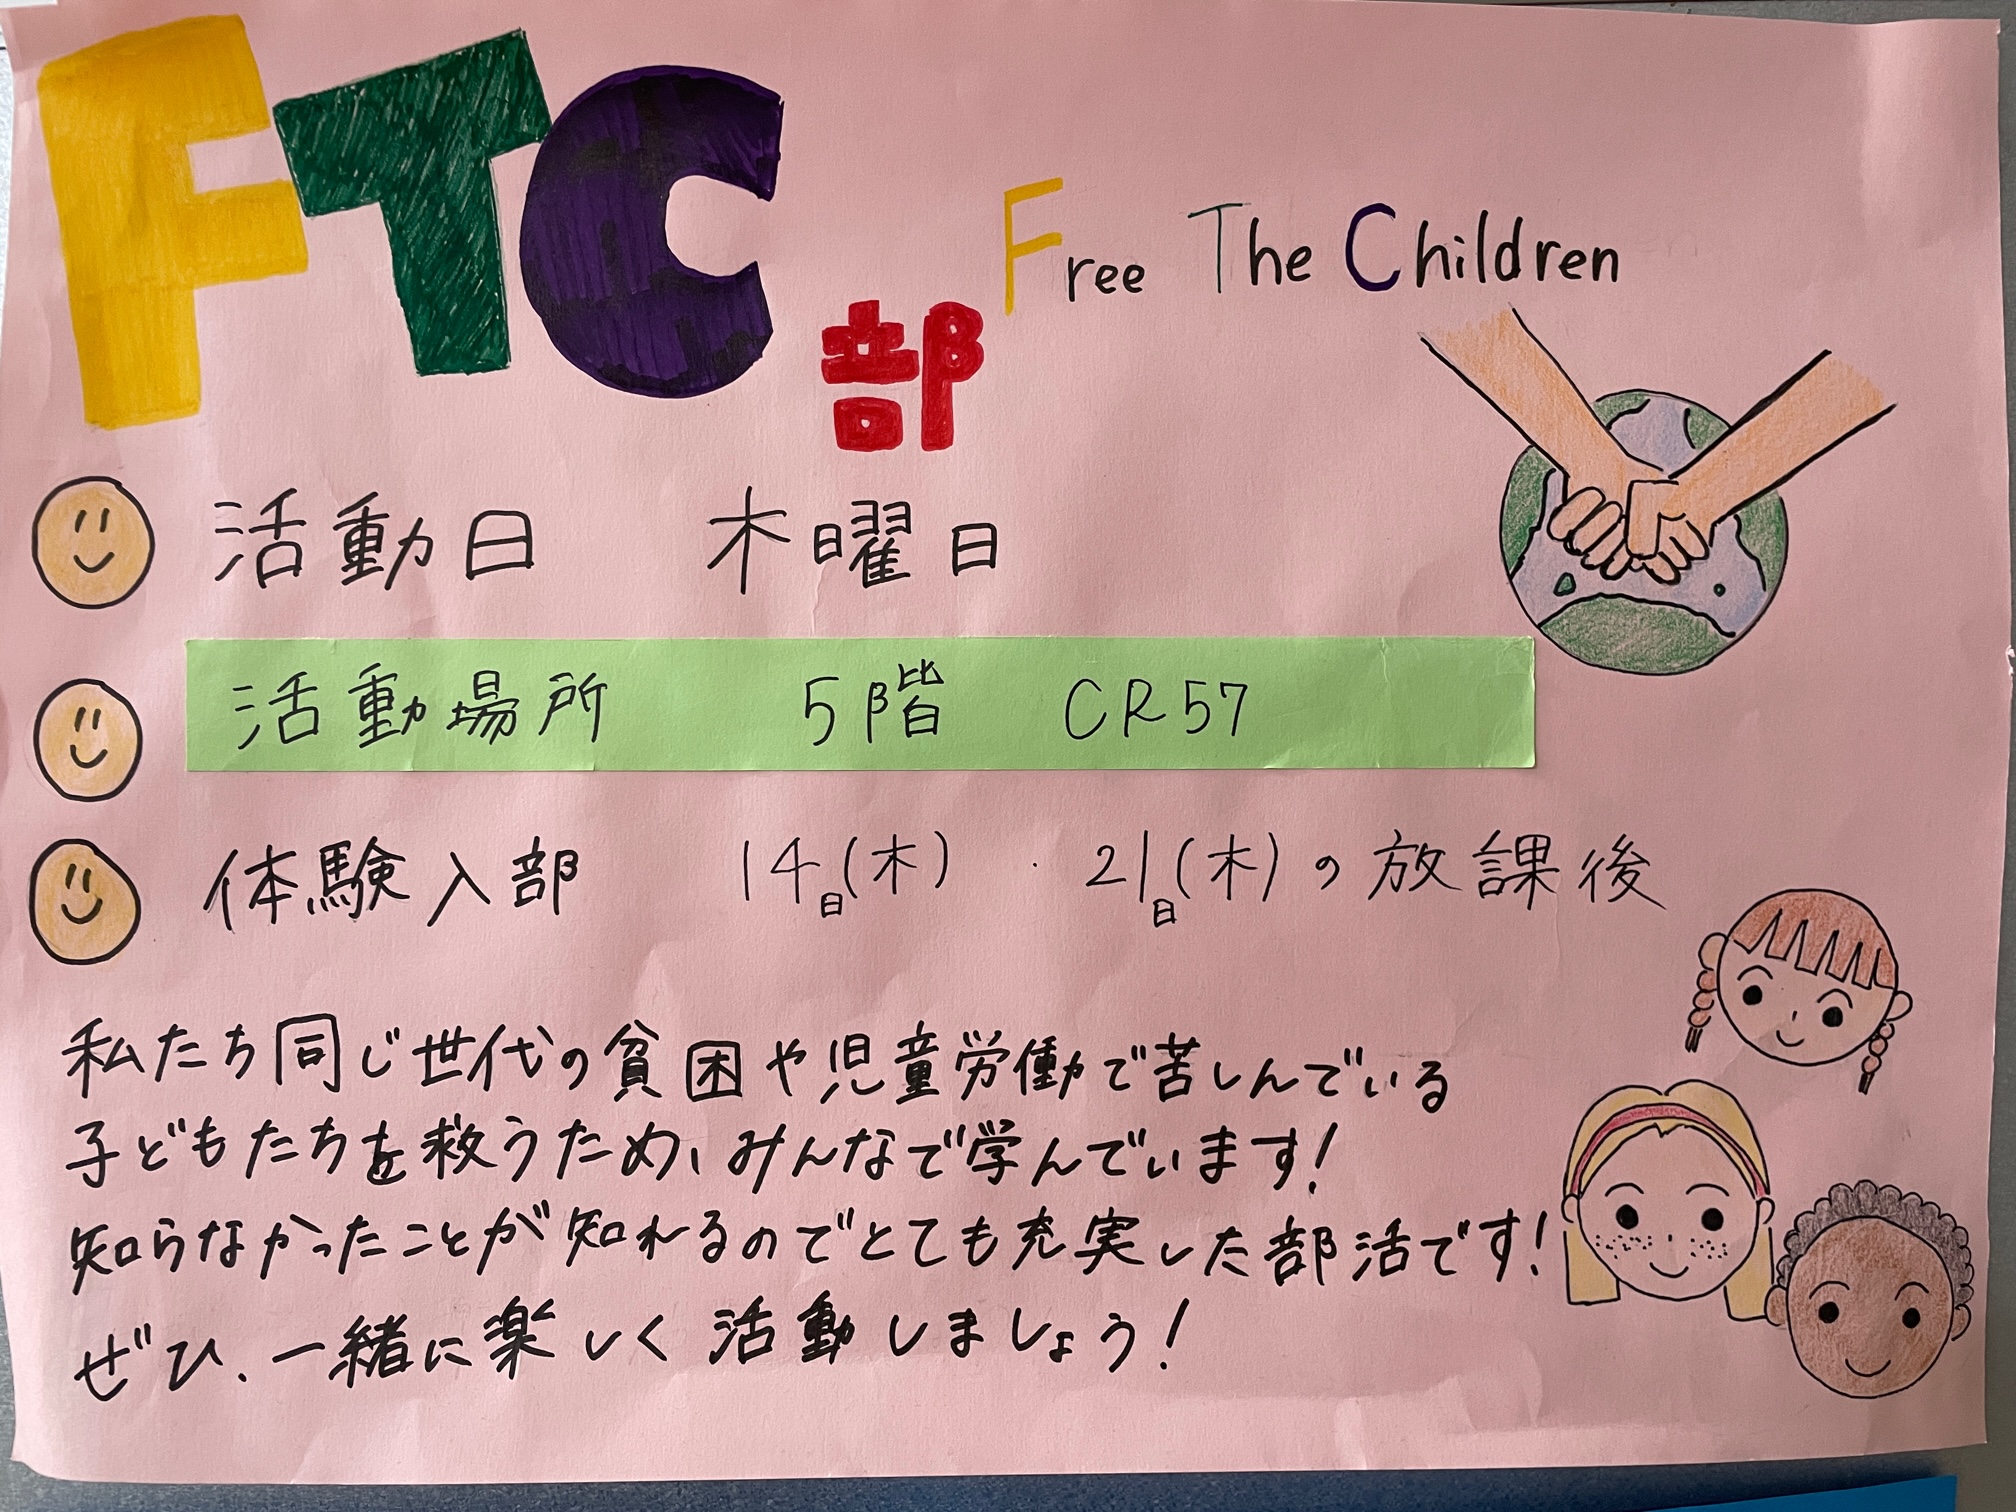 FTC部 Free The Children
活動日 木曜日
活動場所 5階 CR57
体験入部 14日(木)・21日(木)の放課後
私たち同じ世代の貧困や児童労働で苦しんでいる
子どもたちを救うため、みんなで学んでいます!
知らなかったことが知れるのでとても充実した部活です!
ぜひ、一緒に楽しく活動しましょう!